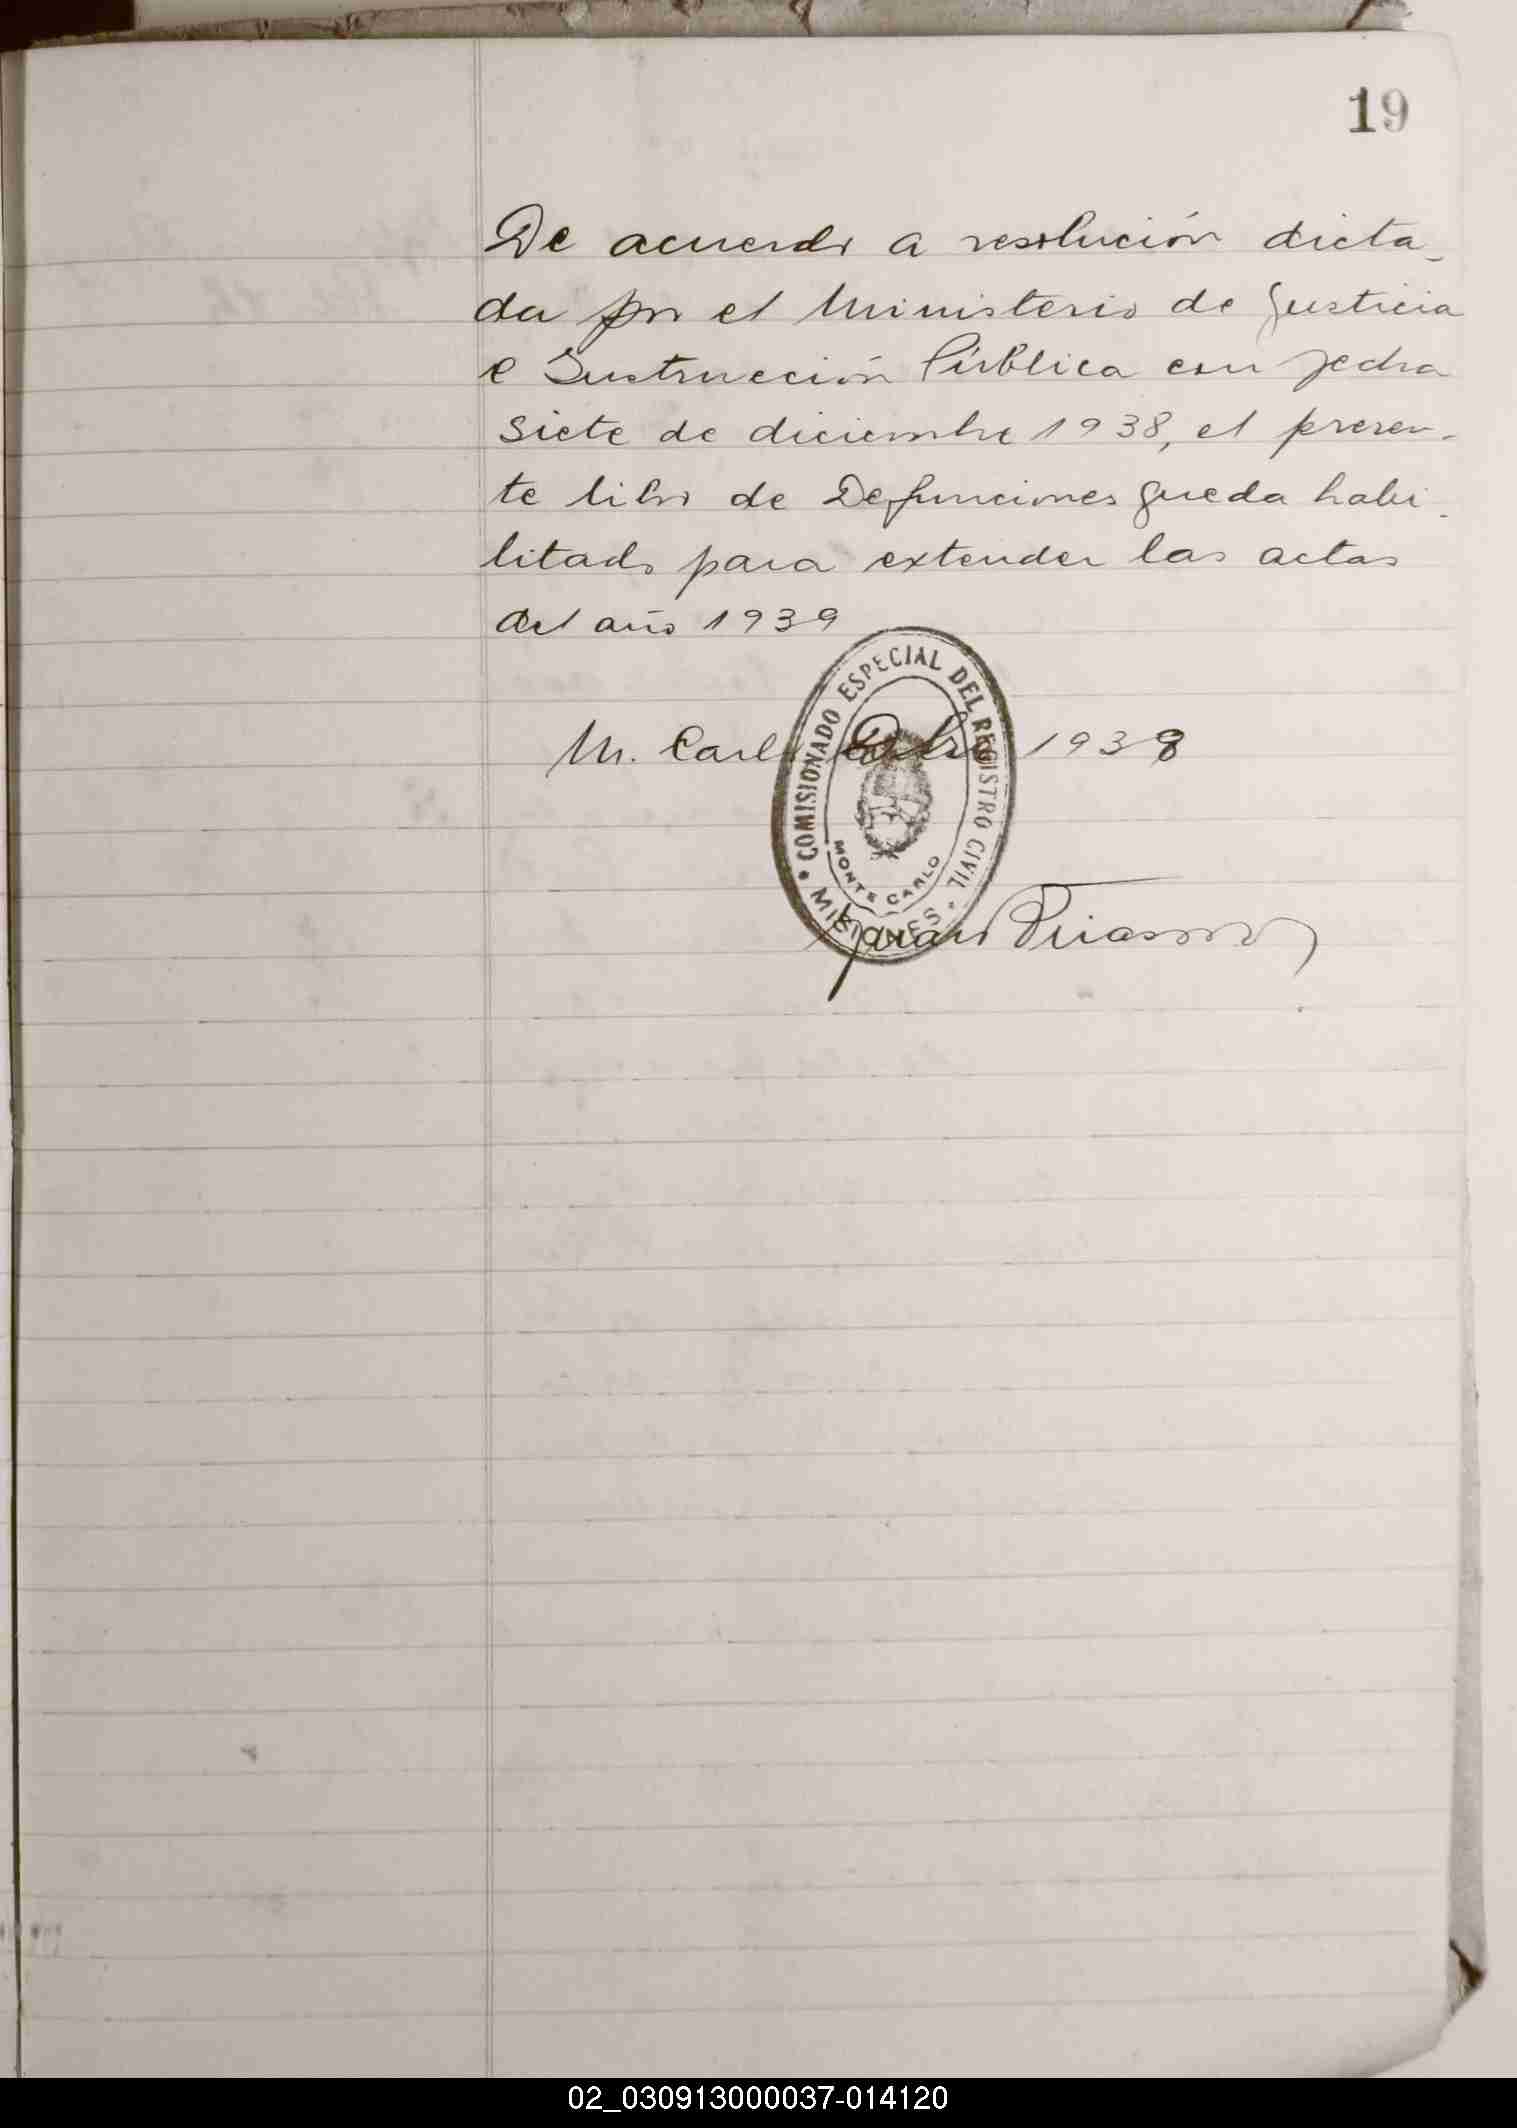 19
De acuerdo a resolución dicta-
da por el Ministerio de Justicia
e Instrucción Pública con fecha
siete de diciembre 1938, el presen-
te libro de Defunciones queda habi-
litado para extender las actas
del año 1939
M. Carlo 1938
COMISIONADO ESPECIAL DEL REGISTRO CIVIL
MONTE CARLO
MISIONES
02_030913000037-014120